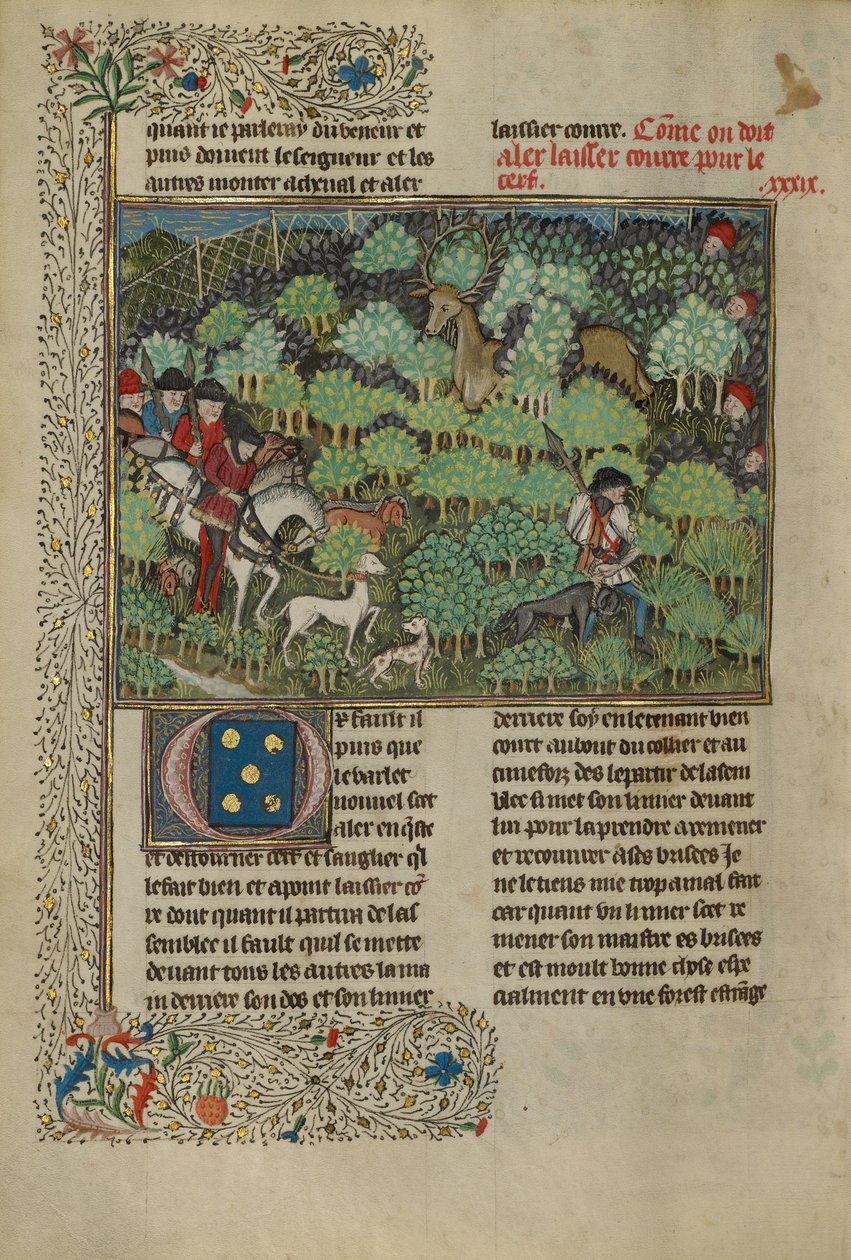 quant ie parleray du veneur et
puis doivent le seigneur et les
autres monter a cheual et aler
laissier courre. Cōme on doit
aler laisser courre pour le
cerf. .xxxix.
Or fault il
puis que
le varlet
nouuel scet
aler en q̄ste
et destourner cerf et sanglier q̄l
le fait bien et apoint laissier cō
re dont quant il partira de las
semblee il fault quil se mette
deuant tous les autres la ma
in derriere son dos et son limier
derriere soy en le tenant bien
court au bout du collier et au
cunefoiz des le partir de lasem
blee si met son limier deuant
lui pour laprendre a remener
et recouurer a ses brisees Je
ne le tiens mie trop a mal fait
car quant vn limier scet re
mener son maistre es brisees
et est moult bonne chose espe
cialment en vne forest estrāge